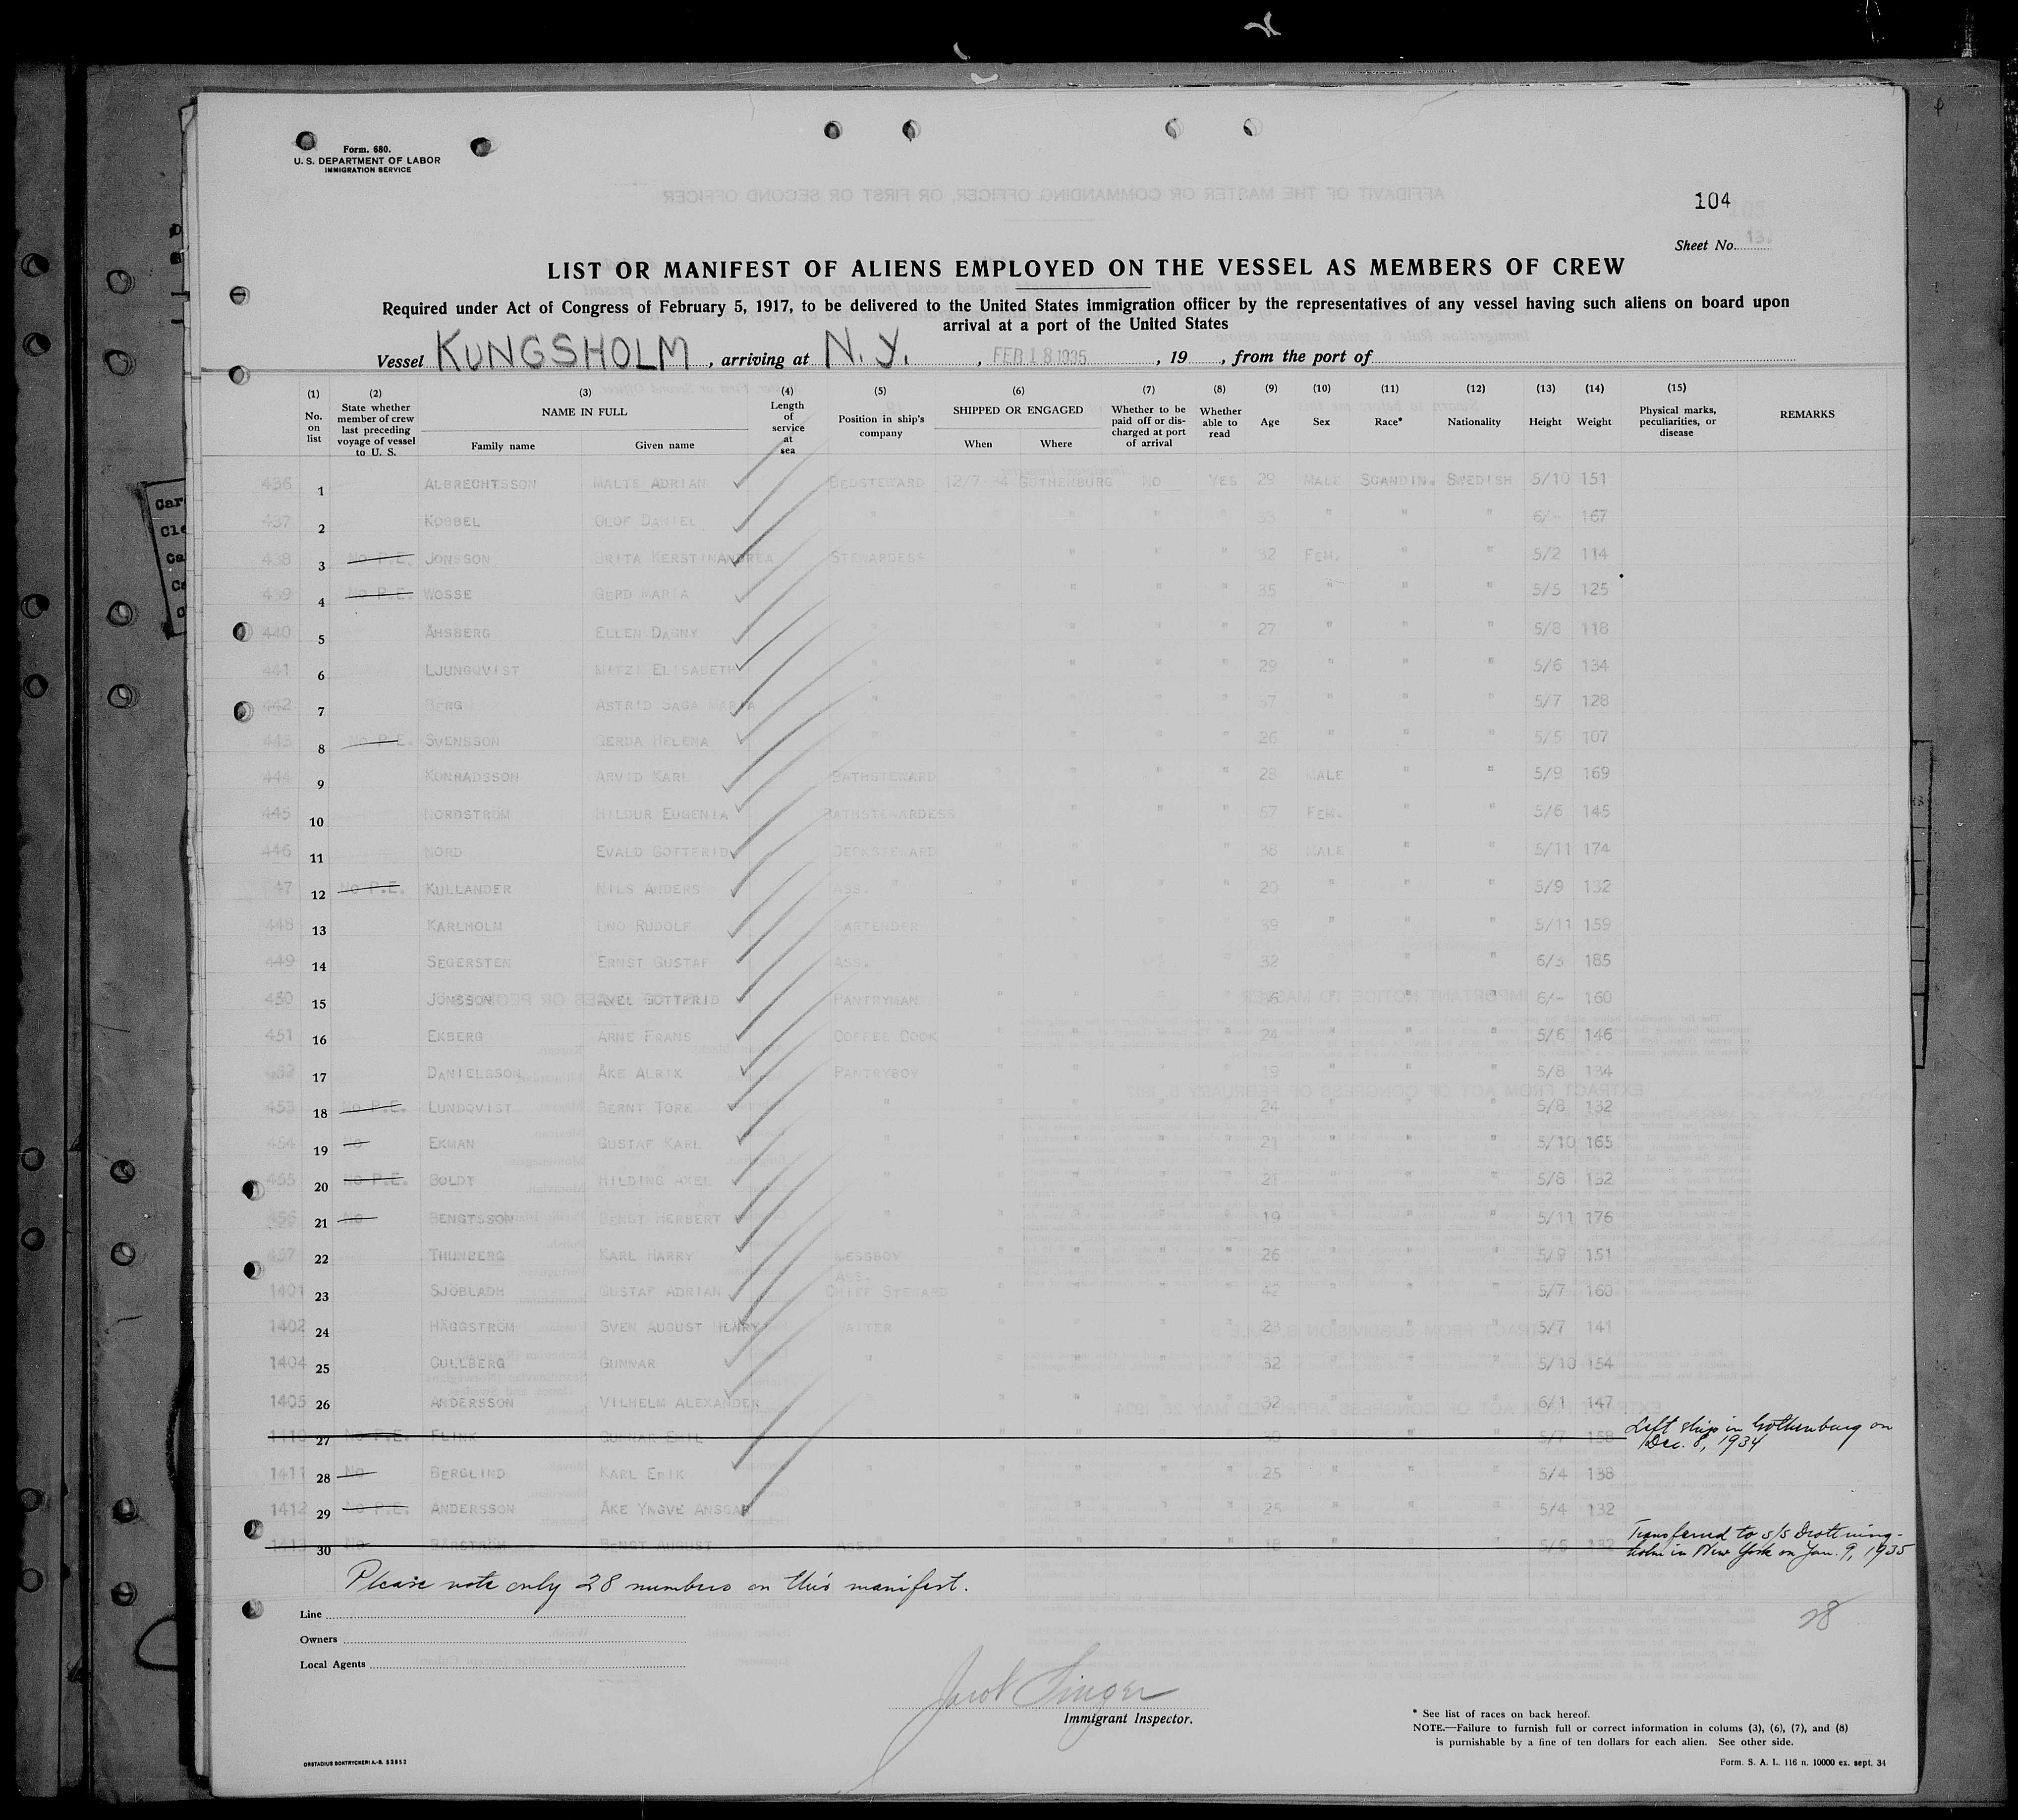 Form. 680.
U. S. DEPARTMENT OF LABOR
IMMIGRATION SERVICE
104
Sheet No. 13.
LIST OR MANIFEST OF ALIENS EMPLOYED ON THE VESSEL AS MEMBERS OF CREW
Required under Act of Congress of February 5, 1917, to be delivered to the United States immigration officer by the representatives of any vessel having such aliens on board upon
arrival at a port of the United States
Vessel KUNGSHOLM, arriving at N.Y., FEB 18 1935, 19 , from the port of
(1) No. on list (2) State whether member of crew last preceding voyage of vessel to U. S. (3) NAME IN FULL Family name Given name (4) Length of service at sea (5) Position in ship's company (6) SHIPPED OR ENGAGED When Where (7) Whether to be paid off or discharged at port of arrival (8) Whether able to read (9) Age (10) Sex (11) Race* (12) Nationality (13) Height (14) Weight (15) Physical marks, peculiarities, or disease REMARKS
436 1 ALBRECHTSSON MALTE ADRIAN BEDSTEWARD 12/7 34 GOTHENBURG NO YES 29 MALE SCANDIN. SWEDISH 5/10 151
437 2 KOBBEL OLOF DANIEL " " " " " 33 " " " 6/- 167
438 3 No P.E. JONSSON BRITA KERSTIN ANDREA STEWARDESS " " " " 32 FEM. " " 5/2 114
439 4 No P.E. WOSSE GERD MARIA " " " " " 35 " " " 5/5 125
440 5 ÅHSBERG ELLEN DAGNY " " " " " 27 " " " 5/8 118
441 6 LJUNGQVIST MITZI ELISABETH " " " " " 29 " " " 5/6 134
442 7 BERG ASTRID SAGA MARIA " " " " " 37 " " " 5/7 128
443 8 No P.E. SVENSSON GERDA HELENA " " " " " 26 " " " 5/5 107
444 9 KONRADSSON ARVID KARL BATHSTEWARD " " " " 28 MALE " " 5/9 169
445 10 NORDSTRÖM HILDUR EUGENIA BATHSTEWARDESS " " " " 57 FEM. " " 5/6 145
446 11 NORD EVALD GOTTFRID DECKSTEWARD " " " " 38 MALE " " 5/11 174
447 12 No P.E. KULLANDER NILS ANDERS ASS. " " " " " 20 " " " 5/9 132
448 13 KARLHOLM UNO RUDOLF BARTENDER " " " " 39 " " " 5/11 159
449 14 SEGERSTEN ERNST GUSTAF ASS. " " " " " 32 " " " 6/3 185
450 15 JÖNSSON AXEL GOTTFRID PANTRYMAN " " " " " " " 6/- 160
451 16 EKBERG ARNE FRANS COFFEE COOK " " " " 24 " " " 5/6 146
452 17 DANIELSSON ÅKE ALRIK PANTRYBOY " " " " 19 " " " 5/8 134
453 18 No P.E. LUNDQVIST BERNT TORE " " " " " 24 " " " 5/8 132
454 19 No EKMAN GUSTAF KARL " " " " " 21 " " " 5/10 165
455 20 No P.E. BOLDT HILDING AXEL " " " " " 21 " " " 5/8 132
456 21 No BENGTSSON BENGT HERBERT " " " " " 19 " " " 5/11 176
457 22 THUNBERG KARL HARRY MESSBOY " " " " 26 " " " 5/9 151
1401 23 SJÖBLADH GUSTAF ADRIAN ASS. CHIEF STEWARD " " " " 42 " " " 5/7 160
1402 24 HÄGGSTRÖM SVEN AUGUST HENRY WAITER " " " " 23 " " " 5/7 141
1404 25 CULLBERG GUNNAR " " " " " 32 " " " 5/10 154
1405 26 ANDERSSON VILHELM ALEXANDER " " " " " 32 " " " 6/1 147
1410 27 No P.E. FLINK GUNNAR EMIL " " " " " 30 " " " 5/7 158 Left ship in Gothenburg on
Dec. 8, 1934
1411 28 No BERGLIND KARL ERIK " " " " " 25 " " " 5/4 138
1412 29 No P.E. ANDERSSON ÅKE YNGVE ANSGAR " " " " " 25 " " " 5/4 132
1413 30 No BÄRSTRÖM BENGT AUGUST ASS. " " " " " 18 " " " 5/6 132 Transferred to s/s Drottning-
holm in New York on Jan. 9, 1935
Please note only 28 numbers on this manifest.
28
Line
Owners
Local Agents
Jacob Singer
Immigrant Inspector.
* See list of races on back hereof.
NOTE.—Failure to furnish full or correct information in colums (3), (6), (7), and (8)
is punishable by a fine of ten dollars for each alien. See other side.
ORSTADIUS BOKTRYCKERI A.-B. 52852
Form. S. A. L. 116 n. 10000 ex. sept. 34